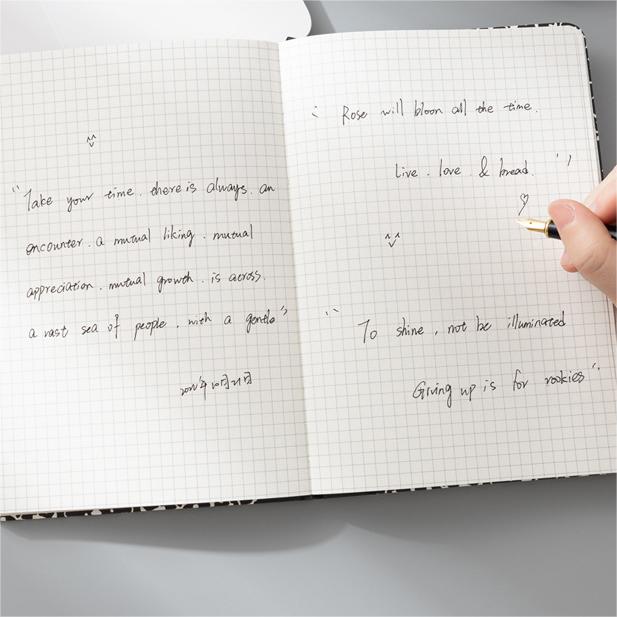 "Take your time. there is always. an
encounter. a mutual liking. mutual
appreciation. mutual growth. is across.
a vast sea of people. with a gentle"
年10月21日
Rose will bloon all the time.
Live. love. & bread. "
" To shine, not be illuminated
Giving up is for rookies "